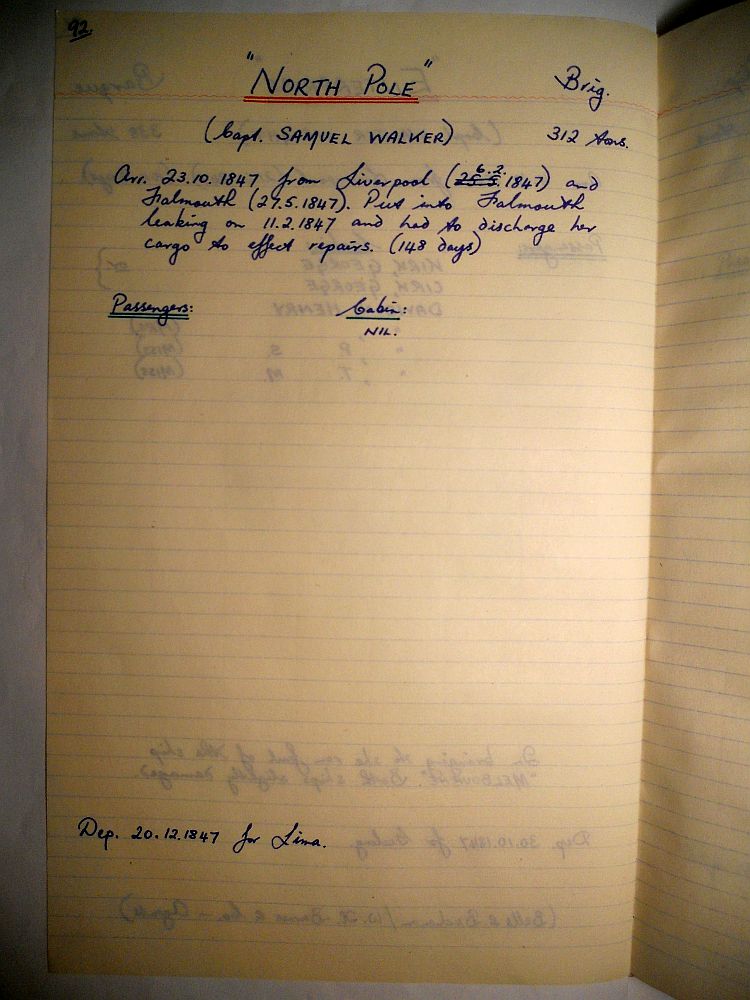 92.
"NORTH POLE" Brig.
(Capt. SAMUEL WALKER) 312 tons.
Arr. 23.10.1847 from Liverpool (6.2.1847) and
Falmouth (27.5.1847). Put into Falmouth
leaking on 11.2.1847 and had to discharge her
cargo to effect repairs. (148 days)
Passengers: Cabin:
NIL.
Dep. 20.12.1847 for Lima.